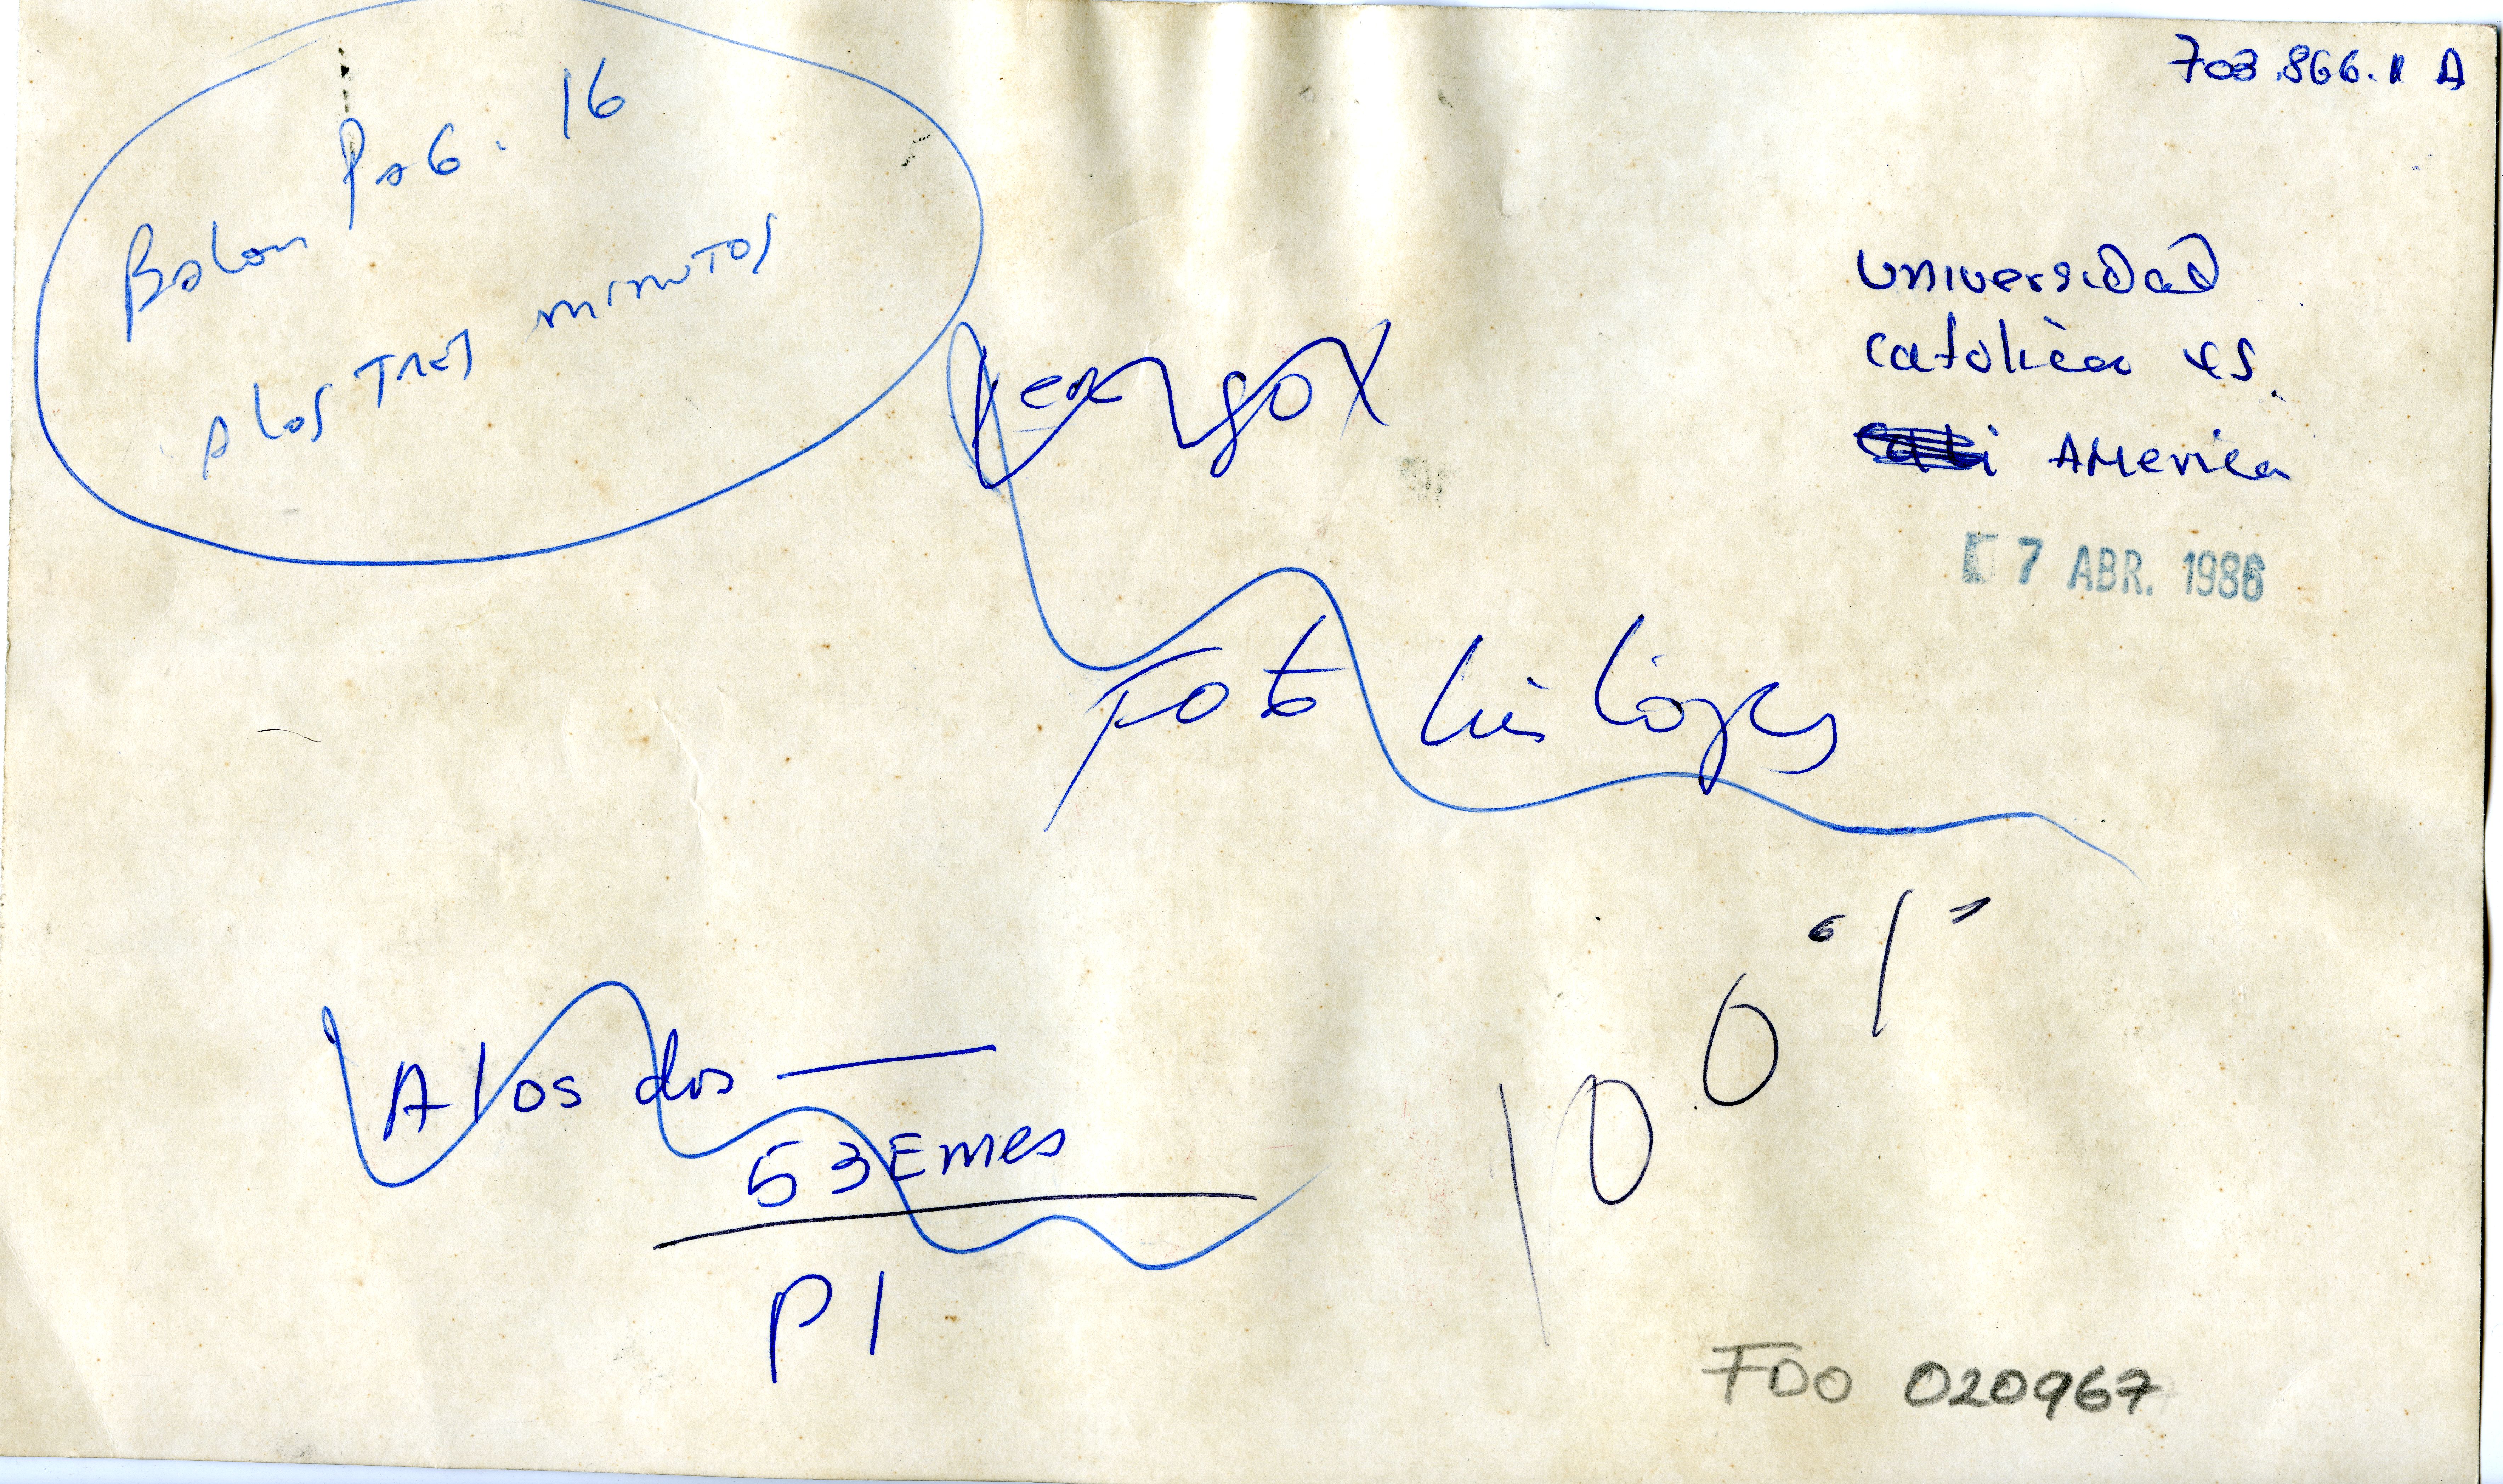 703.866.1 A
Pag. 16
Balon
A los TRES minutos
Universidad
Catolica vs.
Cali America
7 ABR. 1986
Foto Luis López
A los dos —
53 Emes
P1
100 %
FDO 020967